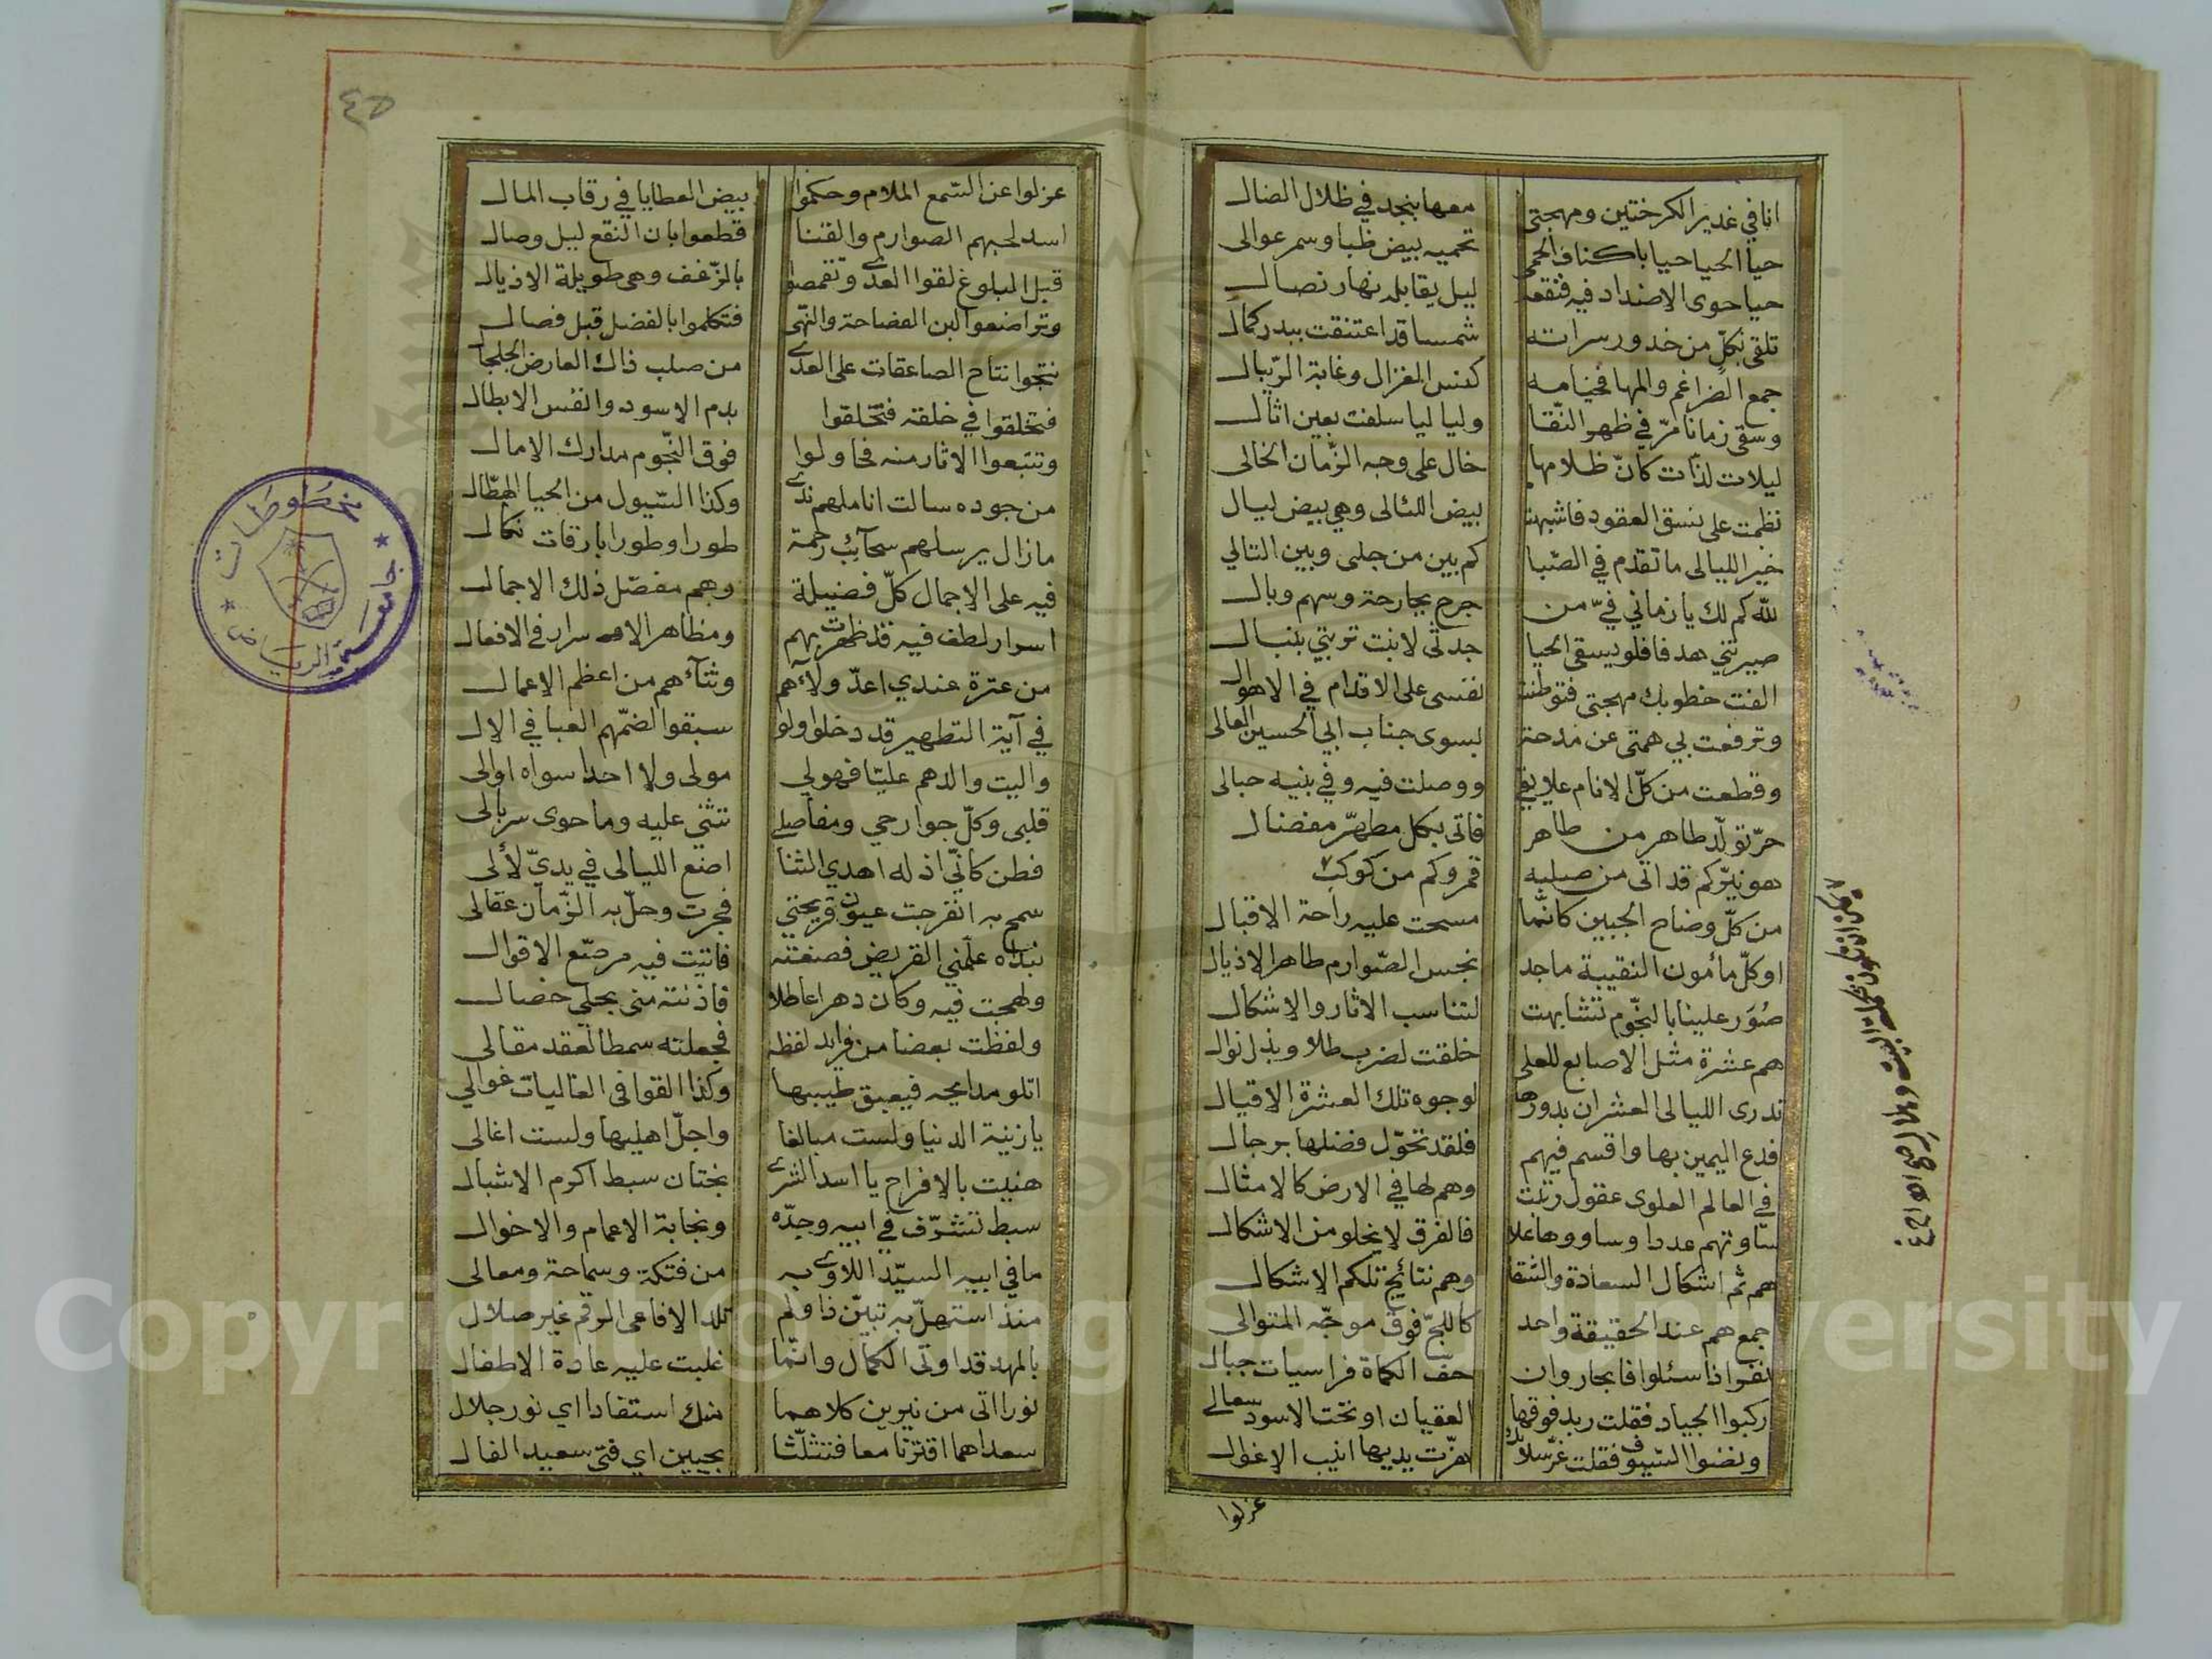 انا في غدير الكرختين ومهجتي معها بنجد في ظلال الضال
حيا الحيا حيا باكناف الحمى تحميه بيض ظبا وسمر عوالى
حيا حوى الاضداد فيه فنقعه ليل يقابله نهار نصال
تلقى بكلّ من خدور سراته شمسا قد اعتنقت ببدر كمال
جمع الضراغم والمها فخيامه كنس الغزال وغابة الرّيبال
وسقى زمانا مرّ في ظهر النّقا ولياليا سلفت بعين اثال
ليلات لذّات كانّ ظلامها خال على وجه الزّمان الخالى
نظمت على نسق العقود فاشبهت بيض اللئالى وهي بيض ليال
خير الليالى ما تقدم في الصّبا كم بين من جلى وبين التالي
للّه كم لك يا زماني فيّ من جرح بجارحة وسهم وبال
صيرتني هدفا فلو يسقى الحيا جدثى لانبت تربتي بنبال
الفت خطوبك مهجتي فتوطنت نفسى على الاقدام في الاهوال
وترفعت بي همتى عن مدحة لسوى جناب ابي الحسين العالى
وقطعت من كلّ الانام علايقي ووصلت فيه وفي بنيه حبالى
حرّ تولّد طاهر من طاهر فاتى بكل مطهّر مفضال
هو نيّر كم قد اتى من صلبه قمر وكم من كوكب
من كلّ وضاح الجبين كانّما مسحت عليه راحة الاقبال
او كلّ مأمون النقيبة ماجد نجس الصّوارم طاهر الاذيال
صُوَر علينا بالنجّوم تشابهت لتناسب الاثار والاشكال
هم عشرة مثل الاصابع للعلى خلقت لضرب طلا وبذل نوال
تدرى الليالى العشران بدورها لوجوه تلك العشرة الاقيال
فدع اليمين بها واقسم فيهم فلقد تحوّل فضلها برجال
في العالم العلوى عقول رتبت وهم لها في الارض كالامثال
ساوتهم عددا وساووها علا فالفرق لا يخلو من الاشكال
هم ثم اشكال السعادة والشقا وهم نتائج تلكم الاشكال
جمع هم عند الحقيقة واحد كاللجّ فوق موجّه المتوالى
نفر اذا سئلوا فابحار وان حفّ الكماة فراسيات جبال
ركبوا الجياد فقلت ربد فوقها العقبان او تحت الاسود سعالى
ونضوا السّيوف فقلت هزّت يديها انيب الاغوال
عزلوا
عزلوا عن السّمع الملام وحكموا بيض العطايا في رقاب المال
اسد لحبهم الصوارم والقنا قطعوا بان النقع ليل وصال
قبل البلوغ لقوا العدى وتقمصوا بالزّغف وهى طويلة الاذيال
وتراضعوا لبن الفصاحة والنهى فتكلموا بالفضل قبل فصال
نتجوا نتاج الصاعقات على العدى من صلب ذاك العارض الجلجال
فتخلقوا في خلقه فتخلّقوا بدم الاسود وانفس الابطال
وتتبعوا الاثار منه فحاولوا فوق النجّوم مدارك الامال
من جوده سالت اناملهم ندى وكذا السّيول من الحيا الهطّال
مازال يرسلهم سحآئب رحمة طورا وطورا بارقات نكال
فيه على الاجمال كلّ فضيلة وهم مفصّل ذلك الاجمال
اسرار لطف فيه قد ظهرت بهم ومظاهر الاسرار في الافعال
من عترة عندي اعدّ ولآءهم وثنآءهم من اعظم الاعمال
في آية التطهير قد دخلوا ولو سبقوا لضمّهم العبا في الال
واليت والدهم عليّا فهو لي مولى ولا احدا سواه اوالى
قلبى وكلّ جوارحي ومفاصلى تثني عليه وما حوى سربالى
فطن كانّي اذ له اهدي الثنا اضع الليالى في يديّ لألى
سمح به انفرجت عيون قريحتي فجرت وحلّ به الزّمان عقالى
نبداه علّمني القريض فصغته فاتيت فيه مرصّع الاقوال
ولهجت فيه وكان دهرا عاطلا فاذنته منى بحلي خصال
ولفظت بعضا من فرايد لفظه فجعلته سمطا لعقد مقالى
اتلو مدايحه فيعبق طيبها وكذا القوافى الغاليات غوالي
يا زينة الدنيا ولست مبالغا واجلّ اهليها ولست اغالى
هنيت بالافراح يا اسد الشرى بختان سبط اكرم الاشبال
سبط تشرّف في ابيه وجدّه ونجابة الاعمام والاخوال
ما في ابيه السيّد اللاوى به من فتكة وسماحة ومعالى
منذ استهلّ به تبيّن ذا ولم تلد الافاعى الرقم غير صلال
بالمهد قد اوتى الكمال وانّما غلبت عليه عادة الاطفال
نورا اتى من نيرين كلاهما منك استفادا اي نور جلال
سعداهما اقترنا معا فتثلّثا بجبين اي فتى سعيد الفال
٤٥
مخطوطات
جامعة الرياض
Copyright © King Saud University